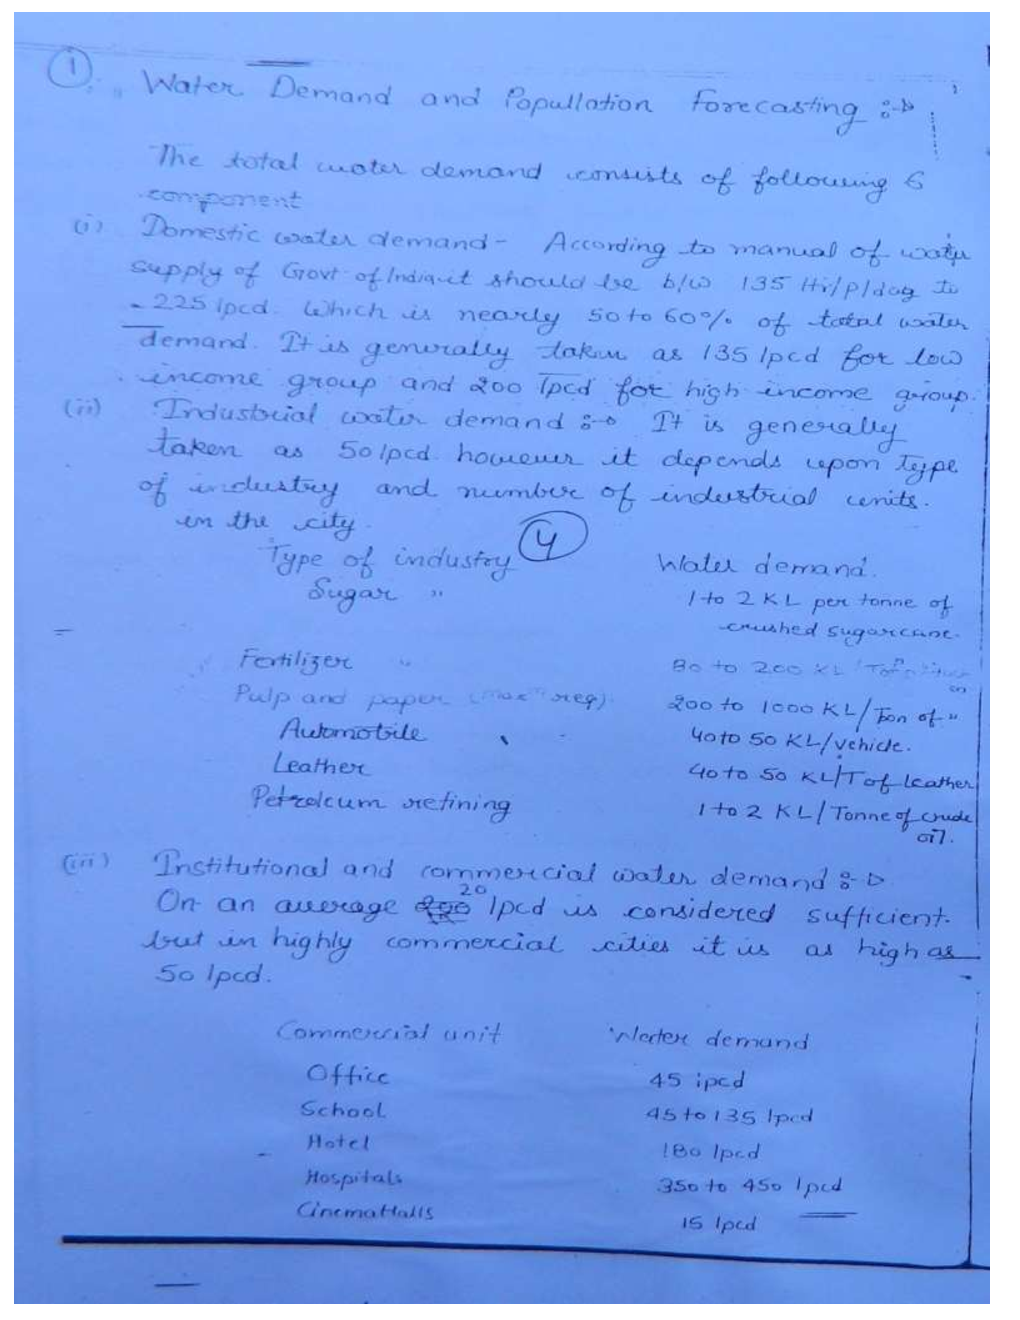 1
Water Demand and Popullation Forecasting :-
The total water demand consists of following 6
component
(i) Domestic water demand - According to manual of water
supply of Govt of India it should be b/w 135 ltr/p/day to
225 lpcd. Which is nearly 50 to 60% of total water
demand. It is generally taken as 135 lpcd for low
income group and 200 lpcd for high income group.
(ii) Industrial water demand :- It is generally
taken as 50 lpcd. however it depends upon type
of industry and number of industrial units.
in the city.
4
Type of industry Water demand.
Sugar " 1 to 2 KL per tonne of
crushed sugarcane.
Fertilizer " 80 to 200 KL
Pulp and paper req). 200 to 1000 KL/Ton of "
Automobile 40 to 50 KL/vehicle.
Leather 40 to 50 KL/T of leather
Petroleum refining 1 to 2 KL/Tonne of crude
oil.
(iii) Institutional and commercial water demand :-
On an average 20 lpcd is considered sufficient.
but in highly commercial cities it is as high as
50 lpcd.
Commercial unit Water demand
Office 45 lpcd
School 45 to 135 lpcd
Hotel 180 lpcd
Hospitals 350 to 450 lpcd
Cinema Halls 15 lpcd